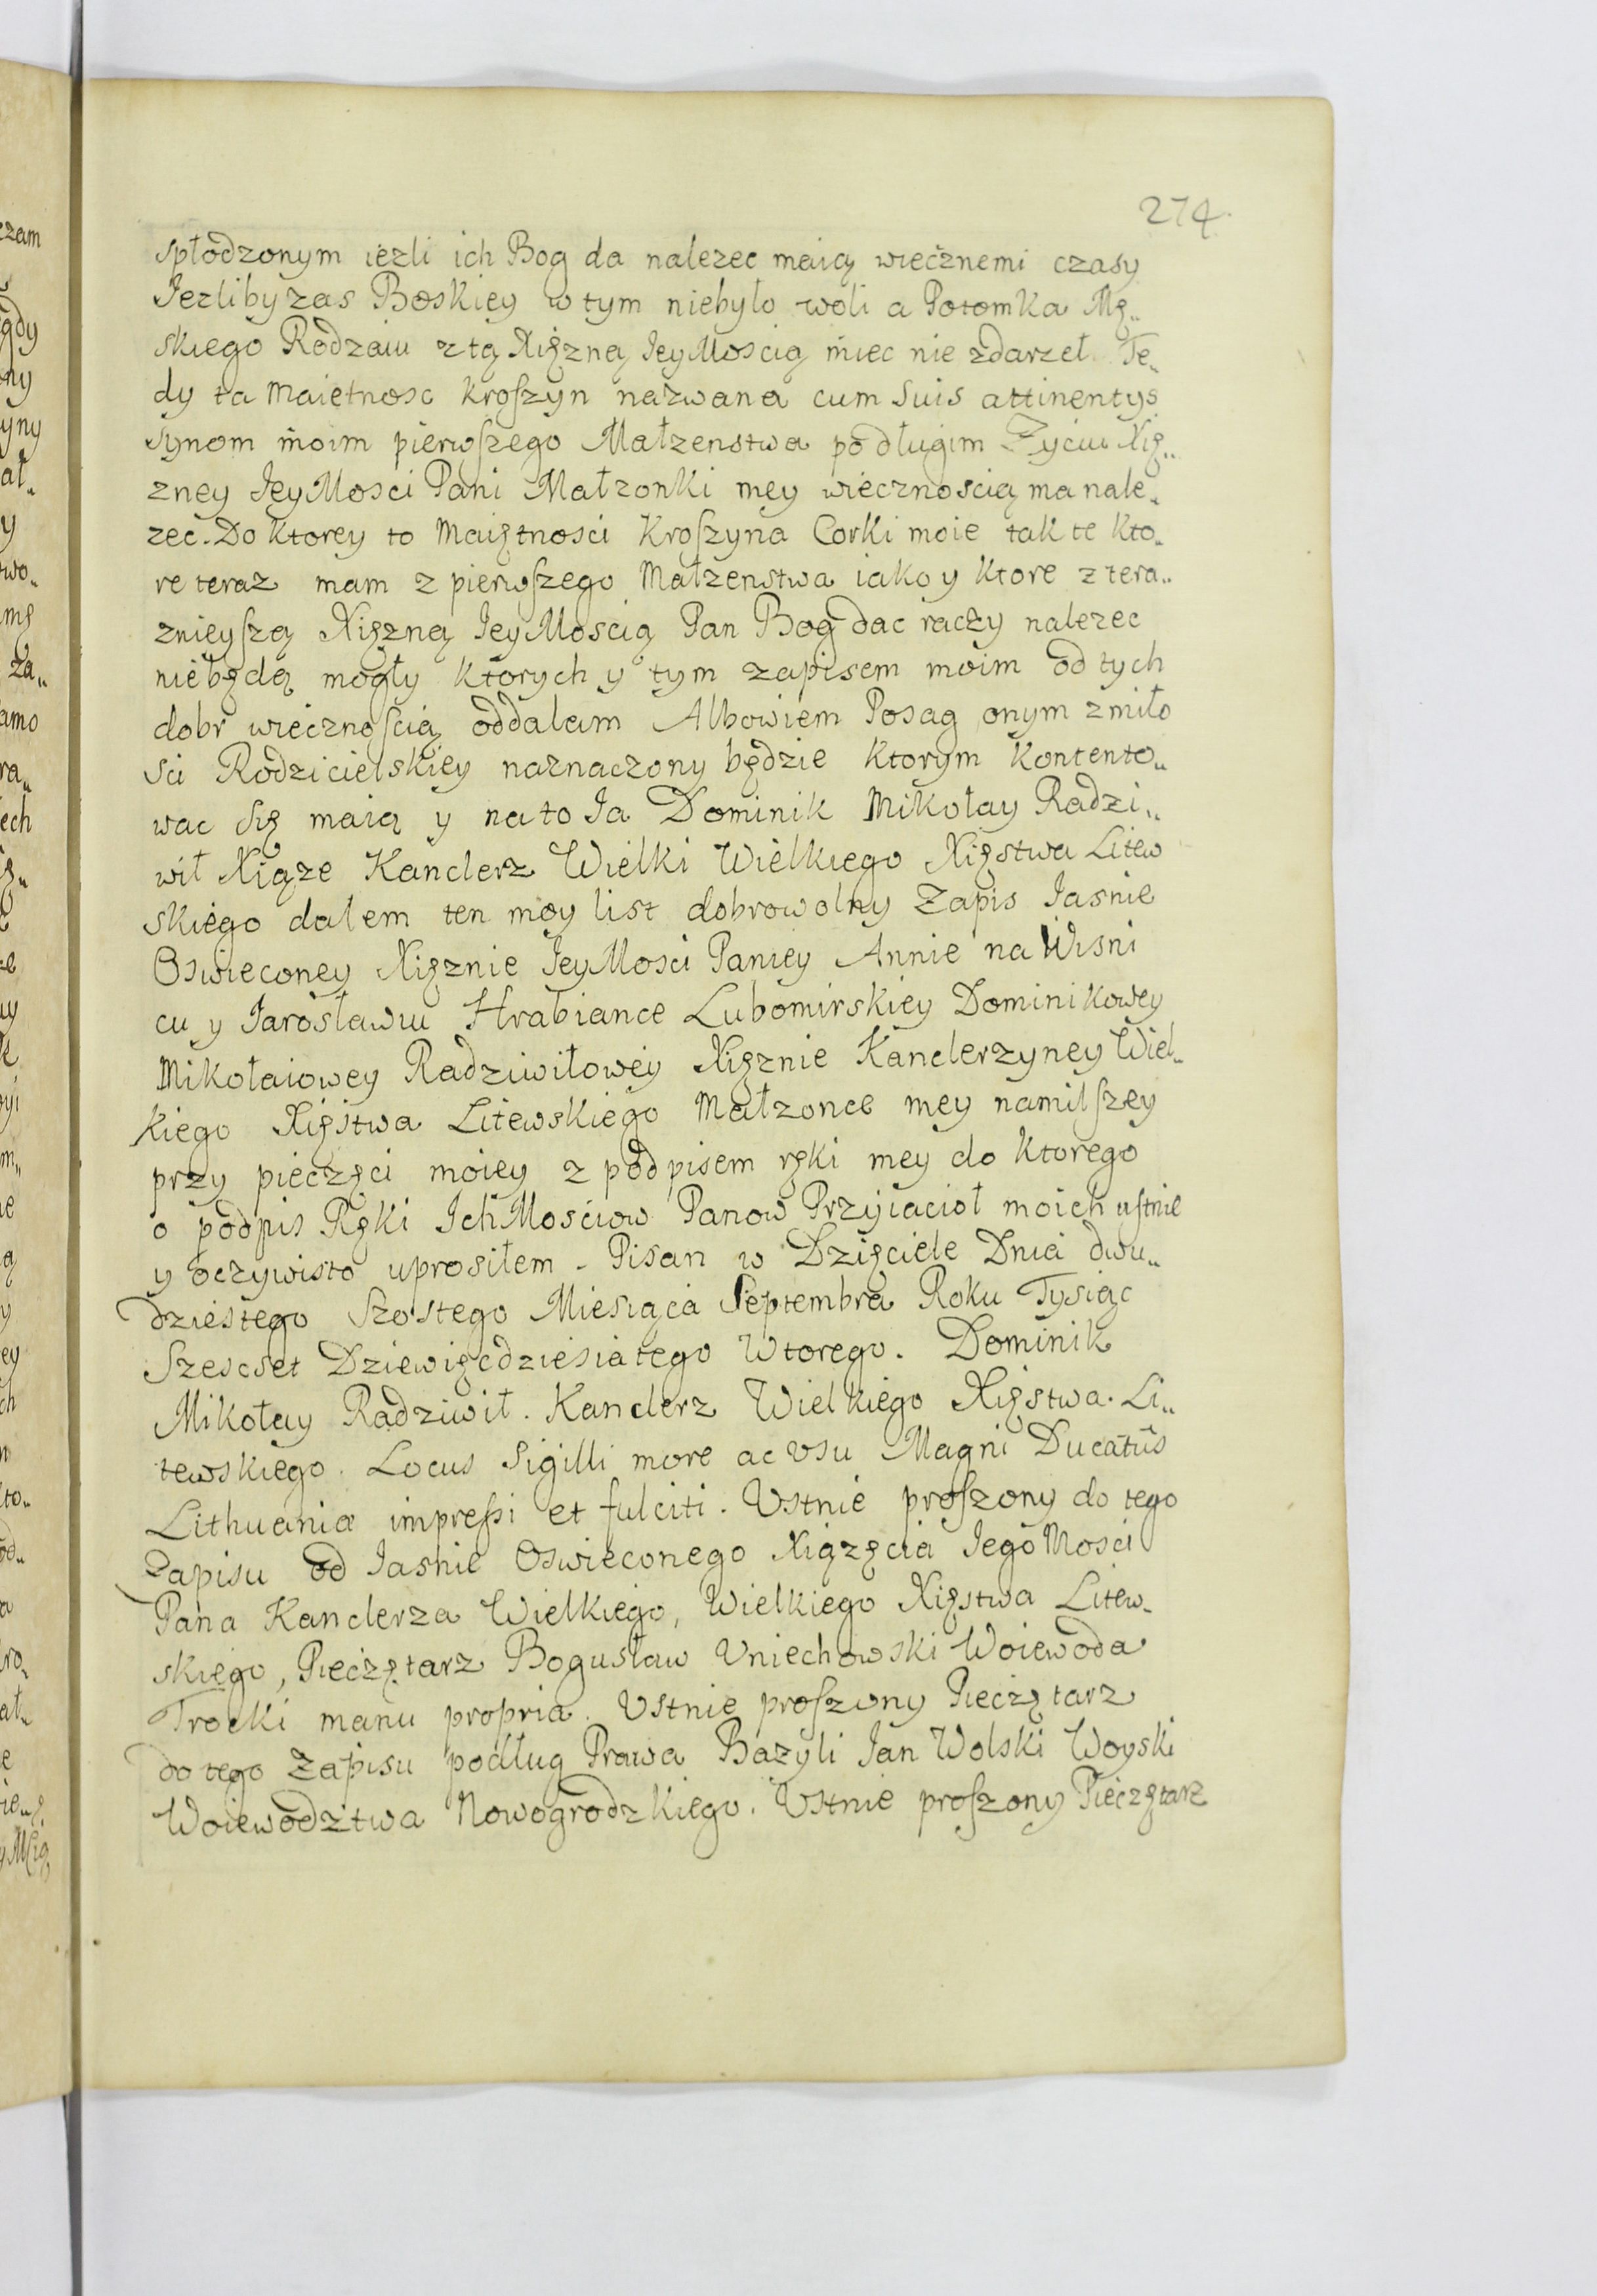 274.
spłodzonym iezli ich Bog da nalezec maią wiecznemi czasy
Iezliby zas Boskiey w tym niebyło woli a Potomka Mę„
skiego Rodzaiu z tą Xiężną JeyMoscią miec nie zdarzeł. Te„
dy ta Maietnosc Kroszyn nazwana cum Suis attinentys
Synom moim pierwszego Małzenstwa po długim Życiu Xię„
zney JeyMosci Pani Małzonki mey wiecznoscią ma nale„
zec. Do ktorey to Maiętnosci Kroszyna Corki moie tak te kto„
re teraz mam z pierwszego Małzenstwa iako y ktore z tera„
znieyszą Xiężną JeyMoscią Pan Bog dac raczy nalezec
niebędą mogły ktorych y tym zapisem moim od tych
dobr wiecznoscią oddalam Albowiem Posag onym z miło
sci Rodzicielskiey naznaczony będzie ktorym kontento„
wac Się maią y na to Ja Dominik Mikołay Radzi„
wił Xiąze Kanclerz Wielki Wielkiego Xięstwa Litew
skiego dałem ten moy list dobrowolny Zapis Jasnie
Oswieconey Xięznie JeyMosci Paniey Annie na Wisni
cu y Jarosławiu Hrabiance Lubomirskiey Dominikowey
Mikołaiowey Radziwiłowey Xięznie Kanclerzyney Wiel„
kiego Xięstwa Litewskiego Małzonce mey namilszey
przy pieczęci moiey z podpisem ręki mey do ktorego
o podpis Ręki IchMosciow Panow Przyiacioł moich ustnie
y oczywisto uprosiłem. Pisan w Dzięciele Dnia dwu„
dziestego Szostego Miesiąca Septembra Roku Tysiąc
Szescset Dziewięcdziesiatego Wtorego. Dominik
Mikołay Radziwił. Kanclerz Wielkiego Xięstwa. Li„
tewskiego. Locus Sigilli more ac usu Magni Ducatus
Lithuaniæ impressi et fulciti. Ustnie proszony do tego
Zapisu od Jasnie Oswieconego Xiązęcia JegoMosci
Pana Kanclerza Wielkiego, Wielkiego Xięstwa Litew„
skiego, Pieczętarz Bogusław Uniechowski Woiewoda
Trocki manu propria. Ustnie proszony Pieczętarz
do tego Zapisu podług Prawa Bazyli Jan Wolski Woyski
Woiewodztwa Nowogrodzkiego. Ustnie proszony Pieczętarz